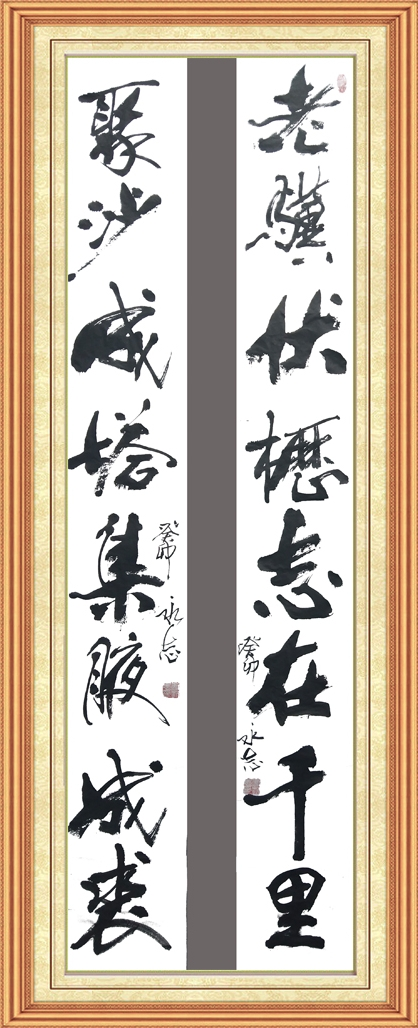 老驥伏櫪志在千里
癸卯 永志
聚沙成塔集腋成裘
癸卯 永志